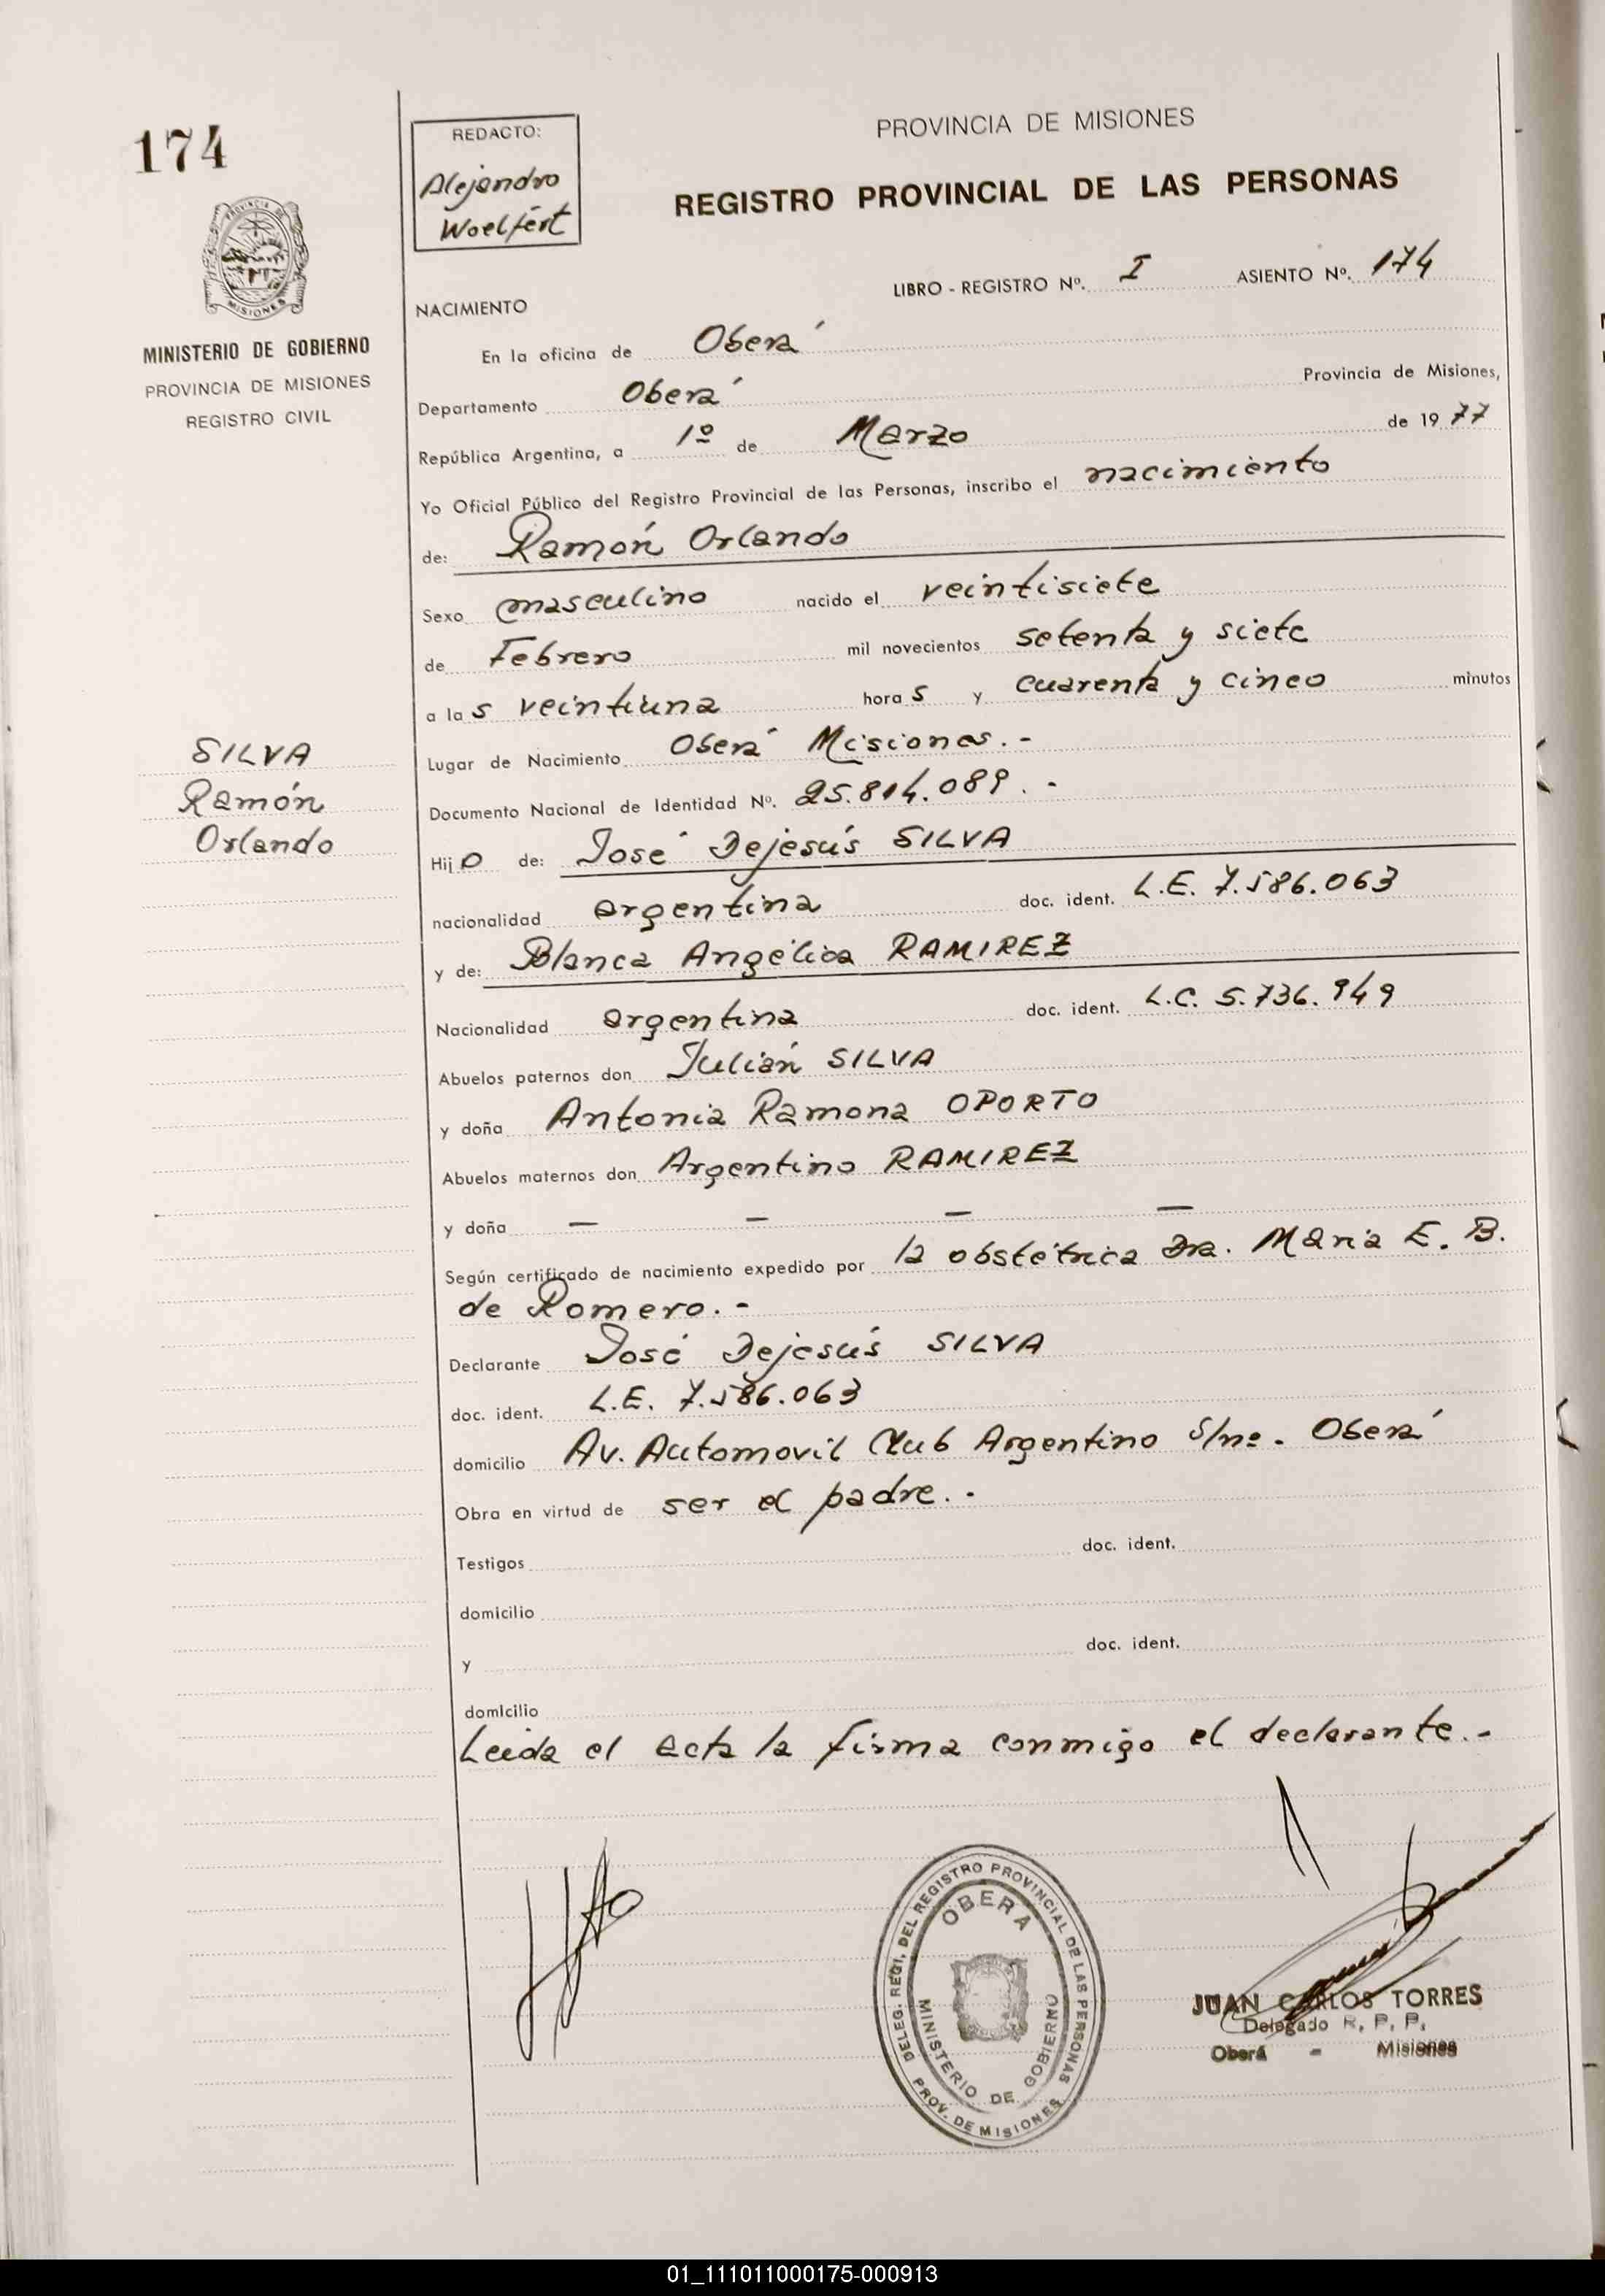 174
REDACTO:
Alejandro
Woelfert
PROVINCIA DE MISIONES
REGISTRO PROVINCIAL DE LAS PERSONAS
PROVINCIA DE
MISIONES
MINISTERIO DE GOBIERNO
PROVINCIA DE MISIONES
REGISTRO CIVIL
LIBRO - REGISTRO Nº. I ASIENTO Nº. 174
NACIMIENTO
En la oficina de Oberá
Departamento Oberá Provincia de Misiones,
República Argentina, a 1º de Marzo de 1977
Yo Oficial Público del Registro Provincial de las Personas, inscribo el nacimiento
de: Ramón Orlando
Sexo masculino nacido el veintisiete
de Febrero mil novecientos setenta y siete
a las veintiuna horas y cuarenta y cinco minutos
Lugar de Nacimiento Oberá Misiones.-
Documento Nacional de Identidad Nº. 25.814.089.-
SILVA
Ramón
Orlando
Hijo de: José Dejesús SILVA
nacionalidad argentina doc. ident. L.E. 7.586.063
y de: Blanca Angélica RAMIREZ
Nacionalidad argentina doc. ident. L.C. 5.736.949
Abuelos paternos don Julián SILVA
y doña Antonia Ramona OPORTO
Abuelos maternos don Argentino RAMIREZ
y doña — — — —
Según certificado de nacimiento expedido por la obstétrica Dra. María E. B.
de Romero.-
Declarante José Dejesús SILVA
doc. ident. L.E. 7.586.063
domicilio Av. Automovil Club Argentino s/nº. Oberá
Obra en virtud de ser el padre.-
Testigos doc. ident.
domicilio
y doc. ident.
domicilio
Leída el acta la firma conmigo el declarante.-
DELEG. REGI. DEL REGISTRO PROVINCIAL DE LAS PERSONAS
OBERA
MINISTERIO DE GOBIERNO
PROV. DE MISIONES
JUAN CARLOS TORRES
Delegado R. P. P.
Oberá - Misiones
01_111011000175-000913